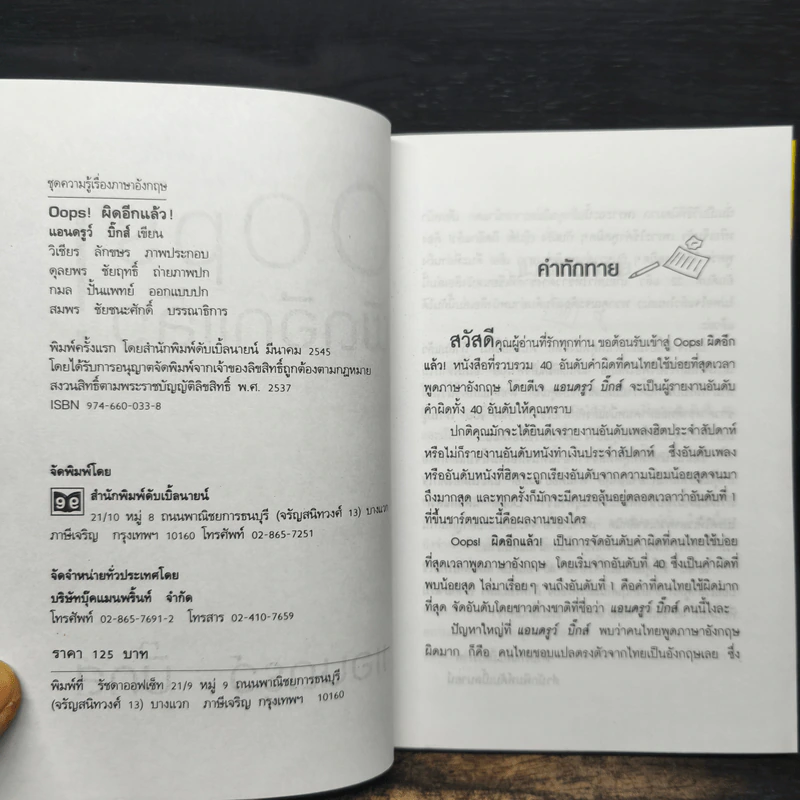 ชุดความรู้เรื่องภาษาอังกฤษ
Oops! ผิดอีกแล้ว!
แอนดรูว์ บิ๊กส์ เขียน
วิเชียร ลักขษร ภาพประกอบ
ดุลยพร ชัยฤทธิ์ ถ่ายภาพปก
กมล ปั้นแพทย์ ออกแบบปก
สมพร ชัยชนะศักดิ์ บรรณาธิการ
พิมพ์ครั้งแรก โดยสำนักพิมพ์ดับเบิ้ลนายน์ มีนาคม 2545
โดยได้รับการอนุญาตจัดพิมพ์จากเจ้าของลิขสิทธิ์ถูกต้องตามกฎหมาย
สงวนสิทธิ์ตามพระราชบัญญัติลิขสิทธิ์ พ.ศ. 2537
ISBN 974-660-033-8
จัดพิมพ์โดย
สำนักพิมพ์ดับเบิ้ลนายน์
21/10 หมู่ 8 ถนนพาณิชยการธนบุรี (จรัญสนิทวงศ์ 13) บางแวก
ภาษีเจริญ กรุงเทพฯ 10160 โทรศัพท์ 02-865-7251
จัดจำหน่ายทั่วประเทศโดย
บริษัทบุ๊คแมนพริ้นท์ จำกัด
โทรศัพท์ 02-865-7691-2 โทรสาร 02-410-7659
ราคา 125 บาท
พิมพ์ที่ รัชดาออฟเซ็ท 21/9 หมู่ 9 ถนนพาณิชยการธนบุรี
(จรัญสนิทวงศ์ 13) บางแวก ภาษีเจริญ กรุงเทพฯ 10160
คำทักทาย
สวัสดีคุณผู้อ่านที่รักทุกท่าน ขอต้อนรับเข้าสู่ Oops! ผิดอีก
แล้ว! หนังสือที่รวบรวม 40 อันดับคำผิดที่คนไทยใช้บ่อยที่สุดเวลา
พูดภาษาอังกฤษ โดยดีเจ แอนดรูว์ บิ๊กส์ จะเป็นผู้รายงานอันดับ
คำผิดทั้ง 40 อันดับให้คุณทราบ
ปกติคุณมักจะได้ยินดีเจรายงานอันดับเพลงฮิตประจำสัปดาห์
หรือไม่ก็รายงานอันดับหนังทำเงินประจำสัปดาห์ ซึ่งอันดับเพลง
หรืออันดับหนังที่ฮิตจะถูกเรียงอันดับจากความนิยมน้อยสุดจนมา
ถึงมากสุด และทุกครั้งก็มักจะมีคนรอลุ้นอยู่ตลอดเวลาว่าอันดับที่ 1
ที่ขึ้นชาร์ตขณะนี้คือผลงานของใคร
Oops! ผิดอีกแล้ว! เป็นการจัดอันดับคำผิดที่คนไทยใช้บ่อย
ที่สุดเวลาพูดภาษาอังกฤษ โดยเริ่มจากอันดับที่ 40 ซึ่งเป็นคำผิดที่
พบน้อยสุด ไล่มาเรื่อยๆ จนถึงอันดับที่ 1 คือคำที่คนไทยใช้ผิดมาก
ที่สุด จัดอันดับโดยชาวต่างชาติที่ชื่อว่า แอนดรูว์ บิ๊กส์ คนนี้ไงละ
ปัญหาใหญ่ที่ แอนดรูว์ บิ๊กส์ พบว่าคนไทยพูดภาษาอังกฤษ
ผิดมาก ก็คือ คนไทยชอบแปลตรงตัวจากไทยเป็นอังกฤษเลย ซึ่ง